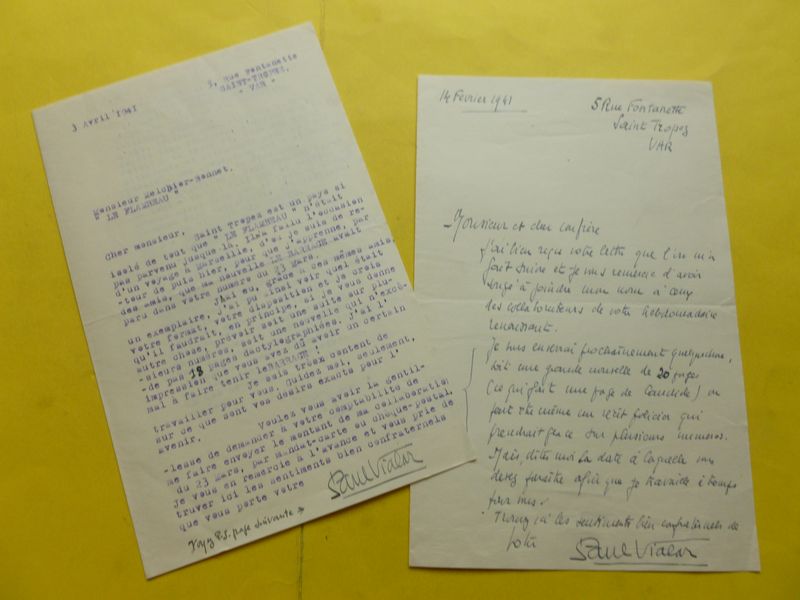 5, Rue Fontanette
SAINT-TROPEZ.
- VAR -
3 Avril 1941
Monsieur Melchior-Bonnet.
" LE FLAMBEAU "
Cher monsieur, Saint Tropez est un pays si
isolé de tout que " LE FLAMBEAU " n'était
pas parvenu jusque là. Il a fallu l'occasion
d'un voyage à Marseille, d'où je suis de re-
-tour de puis hier, pour que j'apprenne, par
des amis, que ma nouvelle LE BARRAGE avait
paru dans votre numéro du 23 mars.
J'ai eu, grâce à ces mêmes amis,
un exemplaire, j'ai pu ainsi voir quel était
votre format, votre disposition et je crois
qu'il faudrait, en principe, si je vous donne
autre chose, prévoir soit une suite sur plu-
-sieurs numéros, soit une nouvelle qui n'excè-
-de pas 18 pages dactylographiées. J'ai l'
impression que vous avez dû avoir un certain
mal à faire tenir le BARRAGE !
Je suis très content de
travailler pour vous. Guidez moi, seulement,
sur ce que sont vos désirs exacts pour l'
avenir.
Voulez vous avoir la gentil-
-lesse de demander à votre comptabilité de
me faire envoyer le montant de ma collaboration
du 23 mars, par mandat-carte ou chèque-postal,
je vous en remercie à l'avance et vous prie de
trouver ici les sentiments bien confraternels
que vous porte votre
Paul Vialar
Voyez P.S. page suivante
14 Février 1941
5 Rue Fontanette
Saint Tropez
VAR
Monsieur et cher confrère
J'ai bien reçu votre lettre que l'on m'a
fait suivre et je vous remercie d'avoir
songé à joindre mon nom à ceux
des collaborateurs de votre hebdomadaire
renaissant.
Je vous enverrai prochainement quelque chose,
soit une grande nouvelle de 20 pages
(ce qui fait une page de Candide) ou
peut être même un récit policier qui
prendrait place sur plusieurs numéros.
Mais, dites moi la date à laquelle vous
devez paraître afin que je travaille à temps
pour vous.
Trouvez ici les sentiments bien confraternels de
votre
Paul Vialar